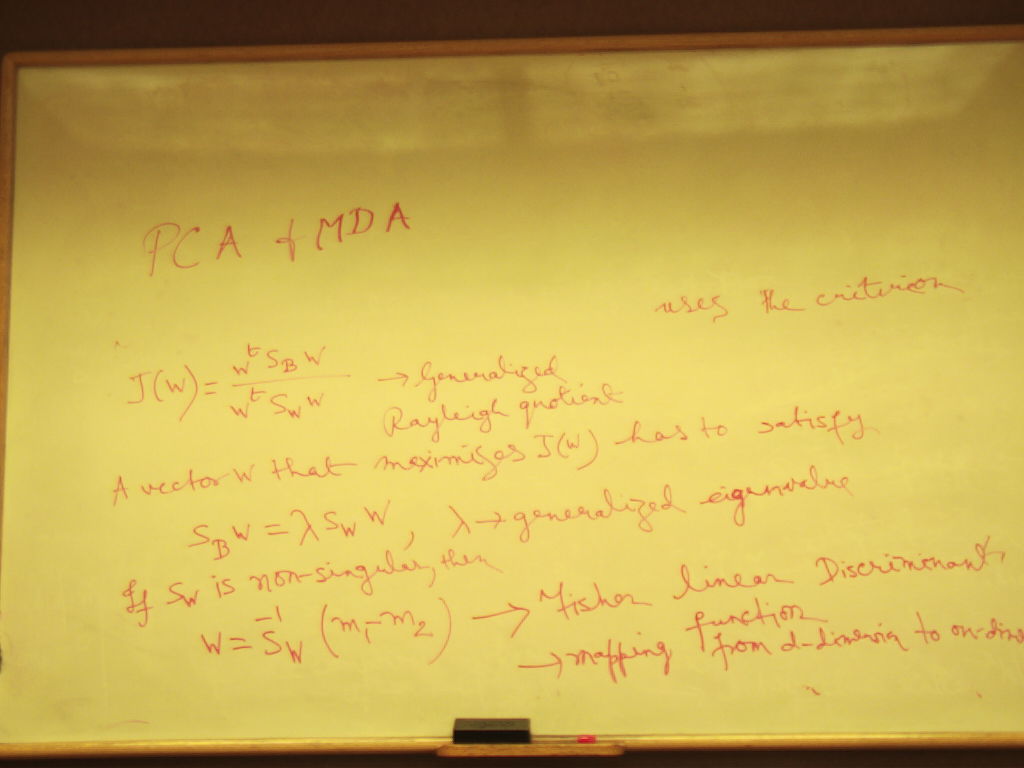 PCA & MDA
uses the criterion
J(w) = wᵗ S_B w / wᵗ S_W w → Generalized
Rayleigh quotient
A vector w that maximizes J(w) has to satisfy
S_B w = λ S_W w, λ → generalized eigenvalue
If S_W is non-singular, then
w = S_W⁻¹ (m₁ - m₂) → Fisher linear Discriminant
function
→ mapping from d-dimension to on-dim